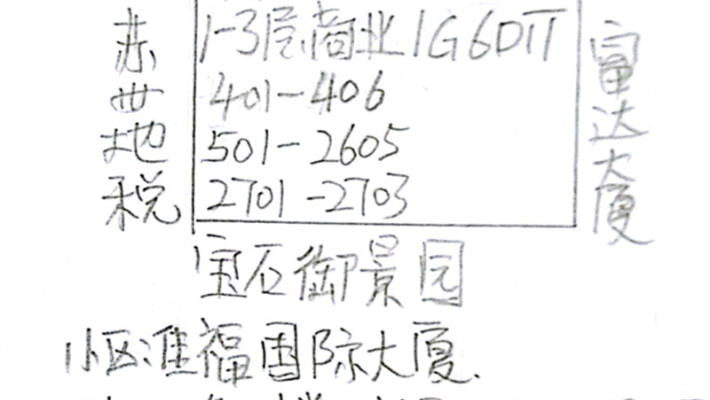 1-3层商业
401-406
501-2605
2701-2703
地税
富达大厦
宝石御景园
小区:准福国际大厦.